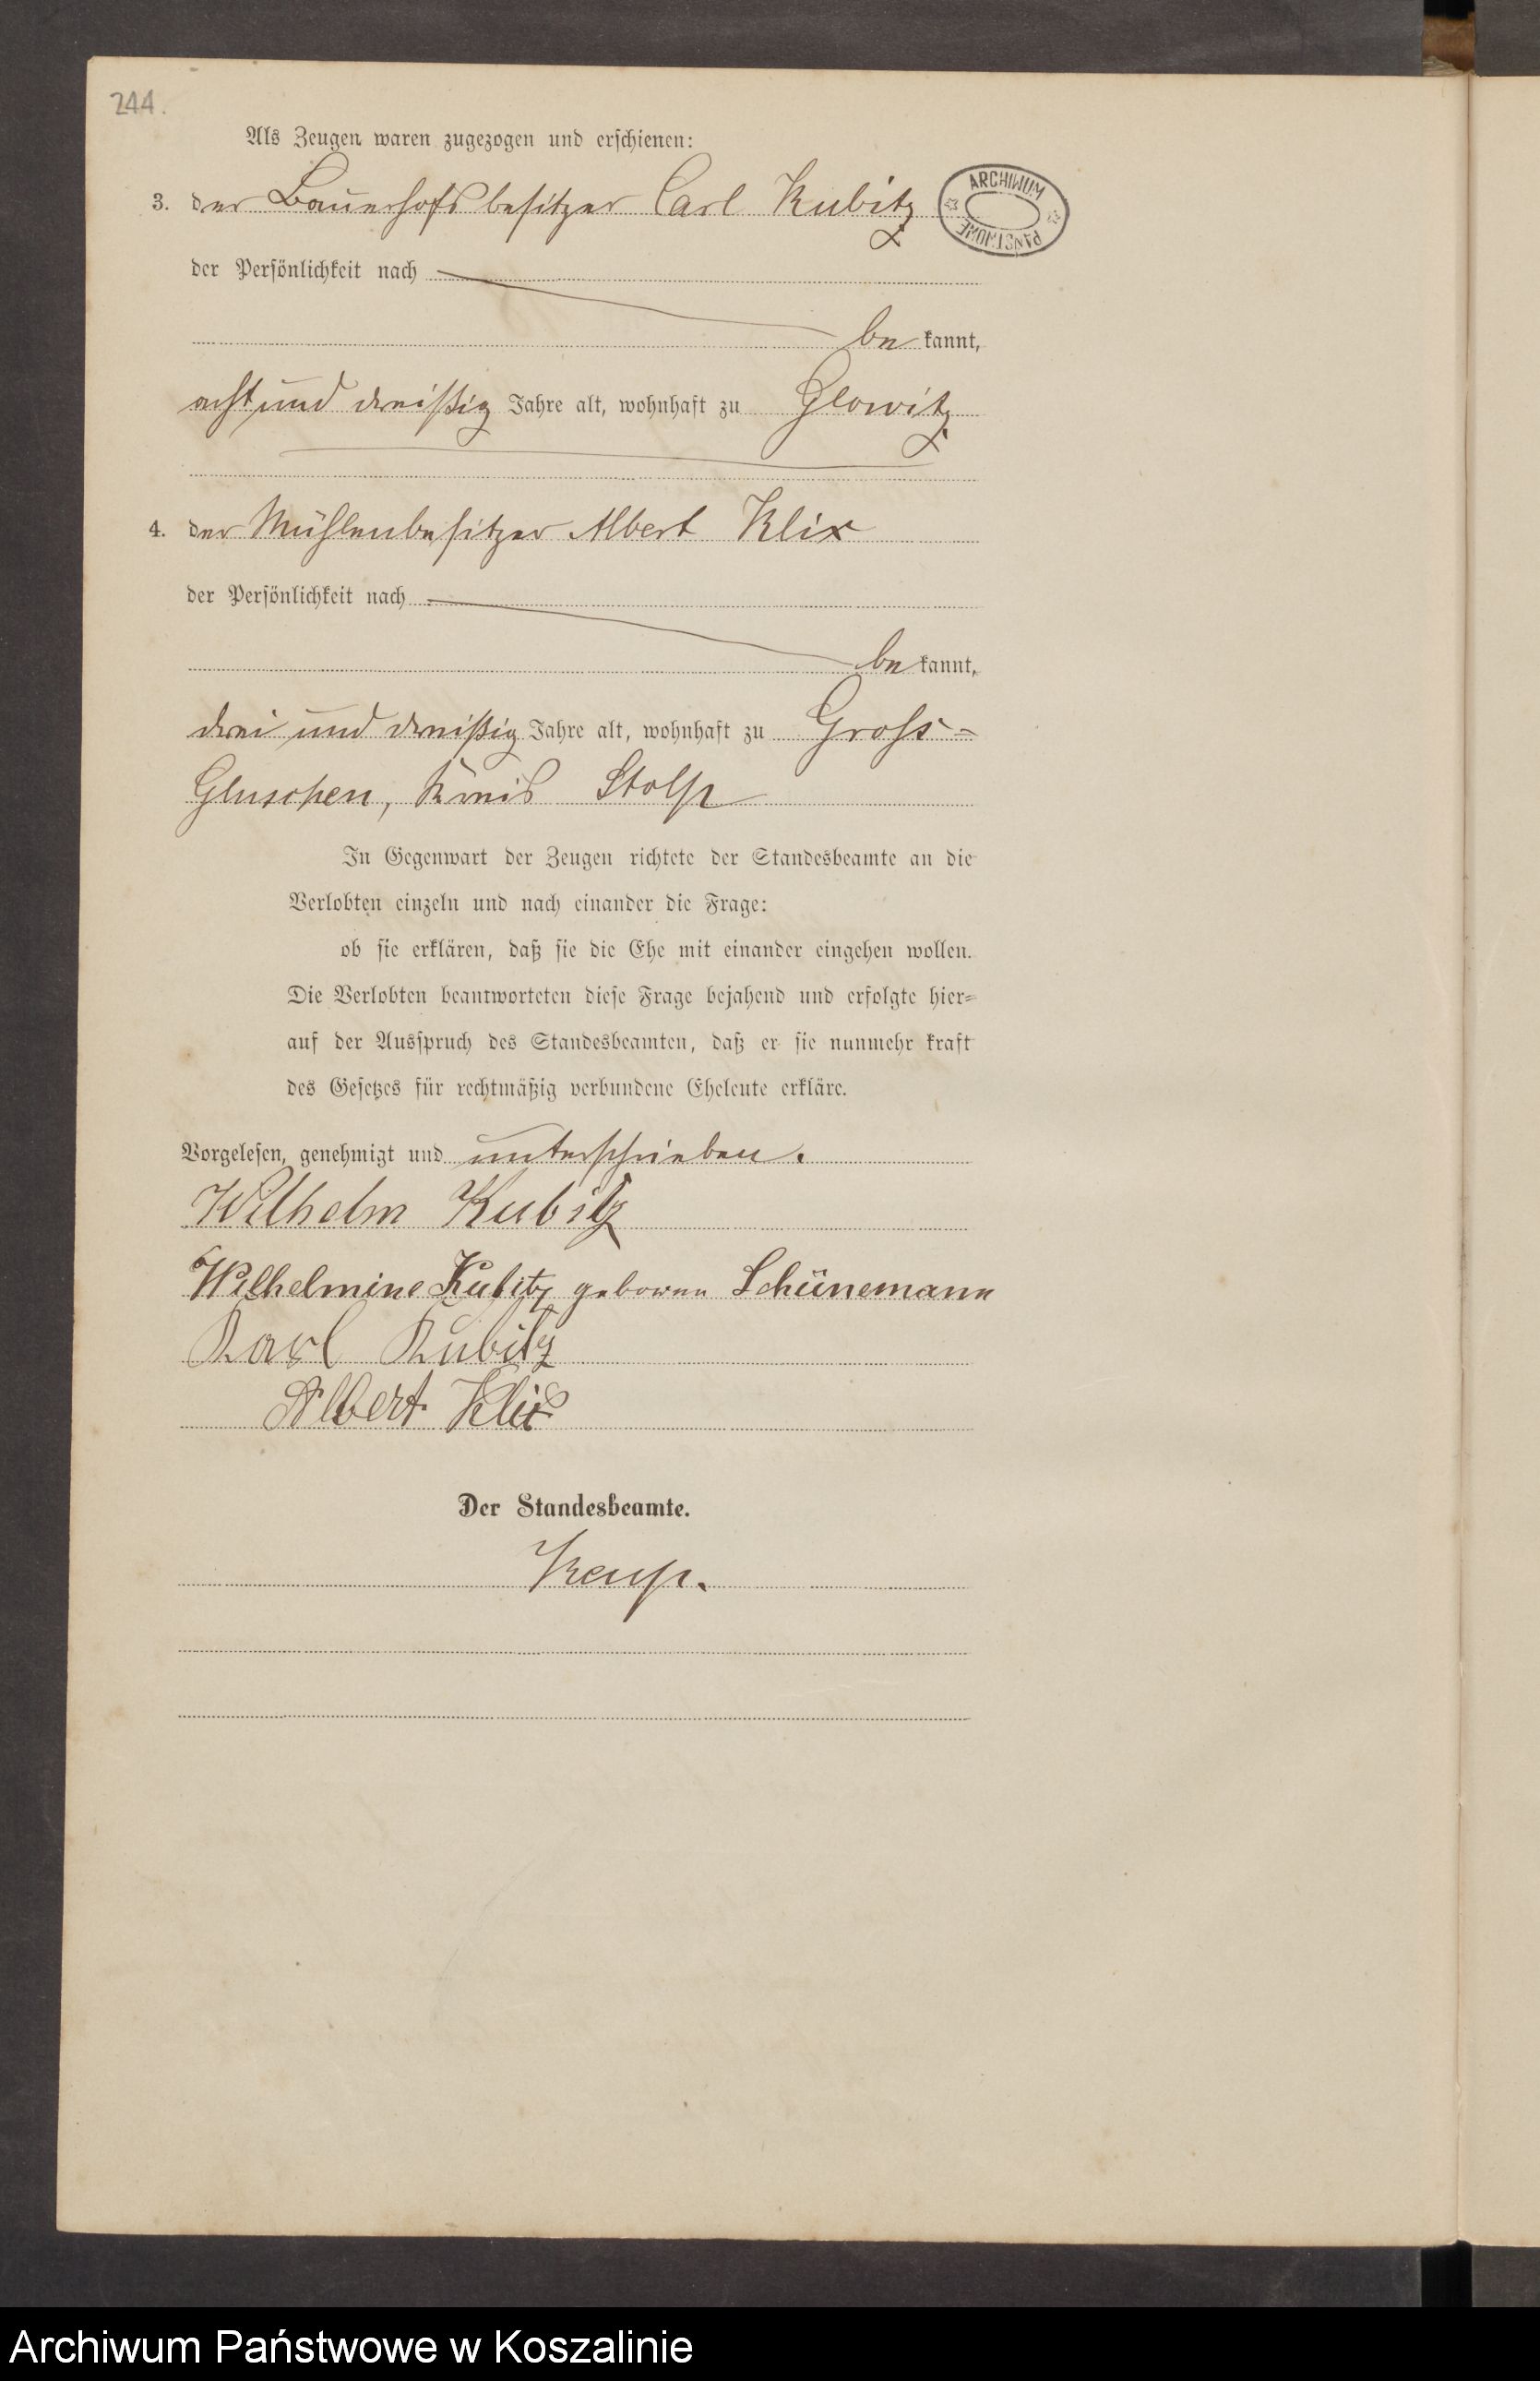 244.
Als Zeugen waren zugezogen und erschienen:
3. der Bauerhofsbesitzer Carl Kubitz
ARCHIWUM PAŃSTWOWE
der Persönlichkeit nach
be kannt,
acht und dreißig Jahre alt, wohnhaft zu Glowitz
4. der Mühlenbesitzer Albert Klix
der Persönlichkeit nach
be kannt,
drei und dreißig Jahre alt, wohnhaft zu Gross-
Gluschen, Kreis Stolp
In Gegenwart der Zeugen richtete der Standesbeamte an die
Verlobten einzeln und nach einander die Frage:
ob sie erklären, daß sie die Ehe mit einander eingehen wollen.
Die Verlobten beantworteten diese Frage bejahend und erfolgte hier-
auf der Ausspruch des Standesbeamten, daß er sie nunmehr kraft
des Gesetzes für rechtmäßig verbundene Eheleute erkläre.
Vorgelesen, genehmigt und unterschrieben.
Wilhelm Kubitz
Wilhelmine Kubitz geborene Schünemann
Karl Kubitz
Albert Klix
Der Standesbeamte.
Archiwum Państwowe w Koszalinie